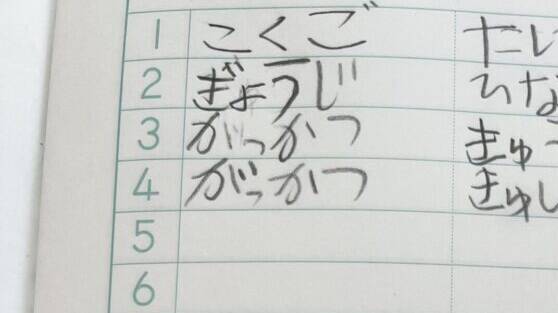 1 こくご たい
2 ぎょうじ ひな
3 がっかつ きゅう
4 がっかつ きゅし
5
6